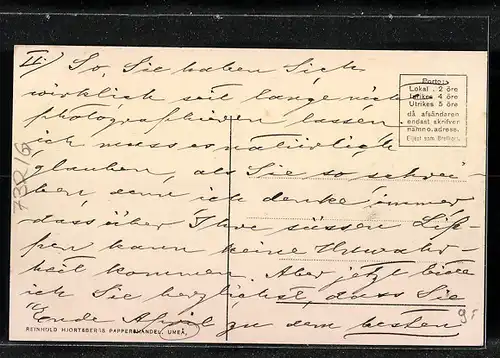 II.) So, Sie haben Sich
wirklich seit lange nicht
photographieren lassen.
ich muss es natürlich
glauben, als Sie so schrei-
ben, denn ich denke immer
dass über Ihre süssen Lip-
pen kann keine Unwahr-
heit kommen. Aber jetzt bitte
ich Sie herzlichst, dass Sie
Ende April zu dem besten
Porto:
Lokal . 2 öre
Inrikes 4 öre
Utrikes 5 öre
då afsändaren
endast skrifver
namn o. adress.
Eljest som Brefkort.
REINHOLD HJORTSBERGS PAPPERSHANDEL, UMEÅ,
7BR/G